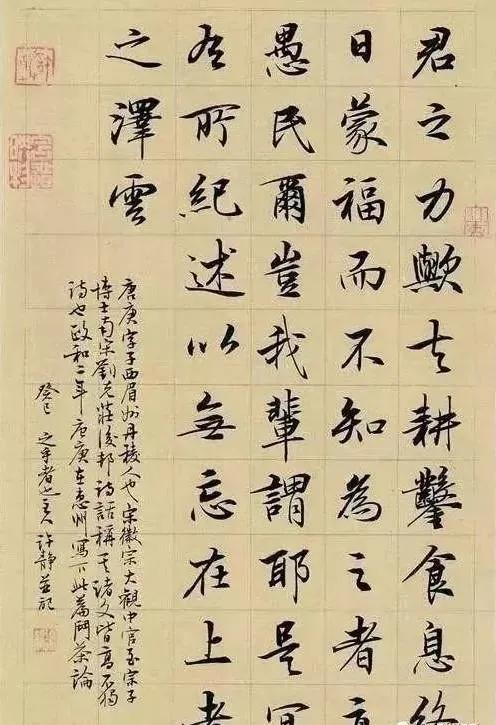 君之力歟夫耕鑿食息終
日蒙福而不知為之者直
愚民爾豈我輩謂耶是宜
有所紀述以無忘在上者
之澤云
唐庚字子西眉州丹稜人也宋徽宗大觀中官至宗子
博士南宋劉克莊後邨詩話稱其諸文皆高不獨
詩也政和二年唐庚在惠州寫下此篇鬥茶論
癸巳 之乎者也主人 許靜並記